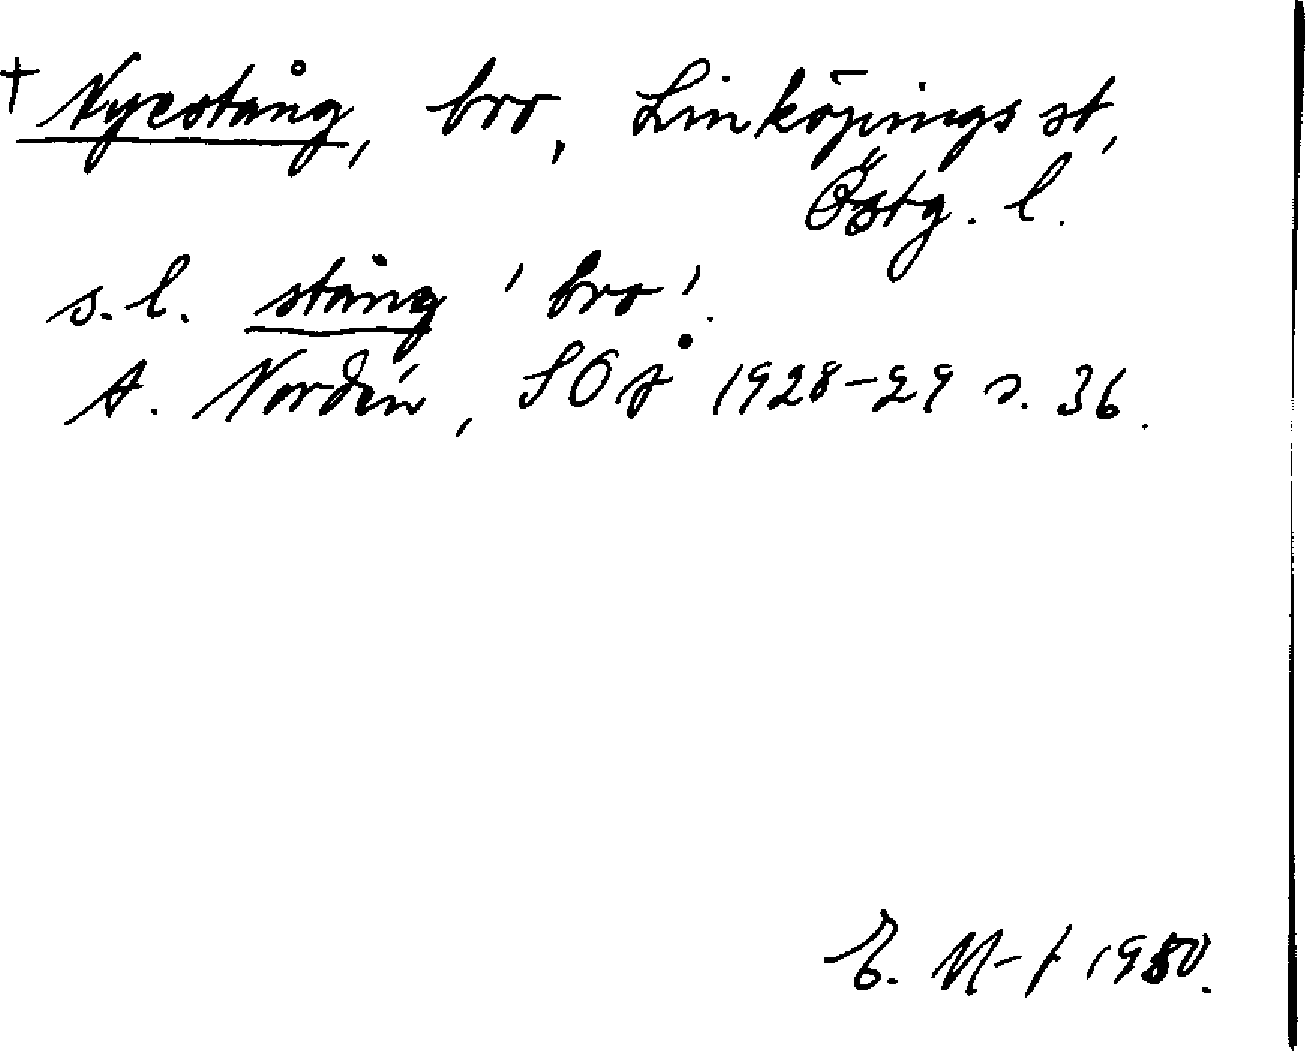 † Nyestång, bro, Linköpings st,
Östg. l.
s.l. stång 'bro'.
A. Nordén, SOÅ 1928-29 s. 36.
E. M-f 1950.